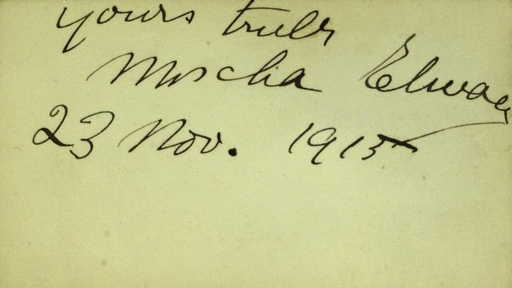 yours truly
Mischa Elman
23 Nov. 1915